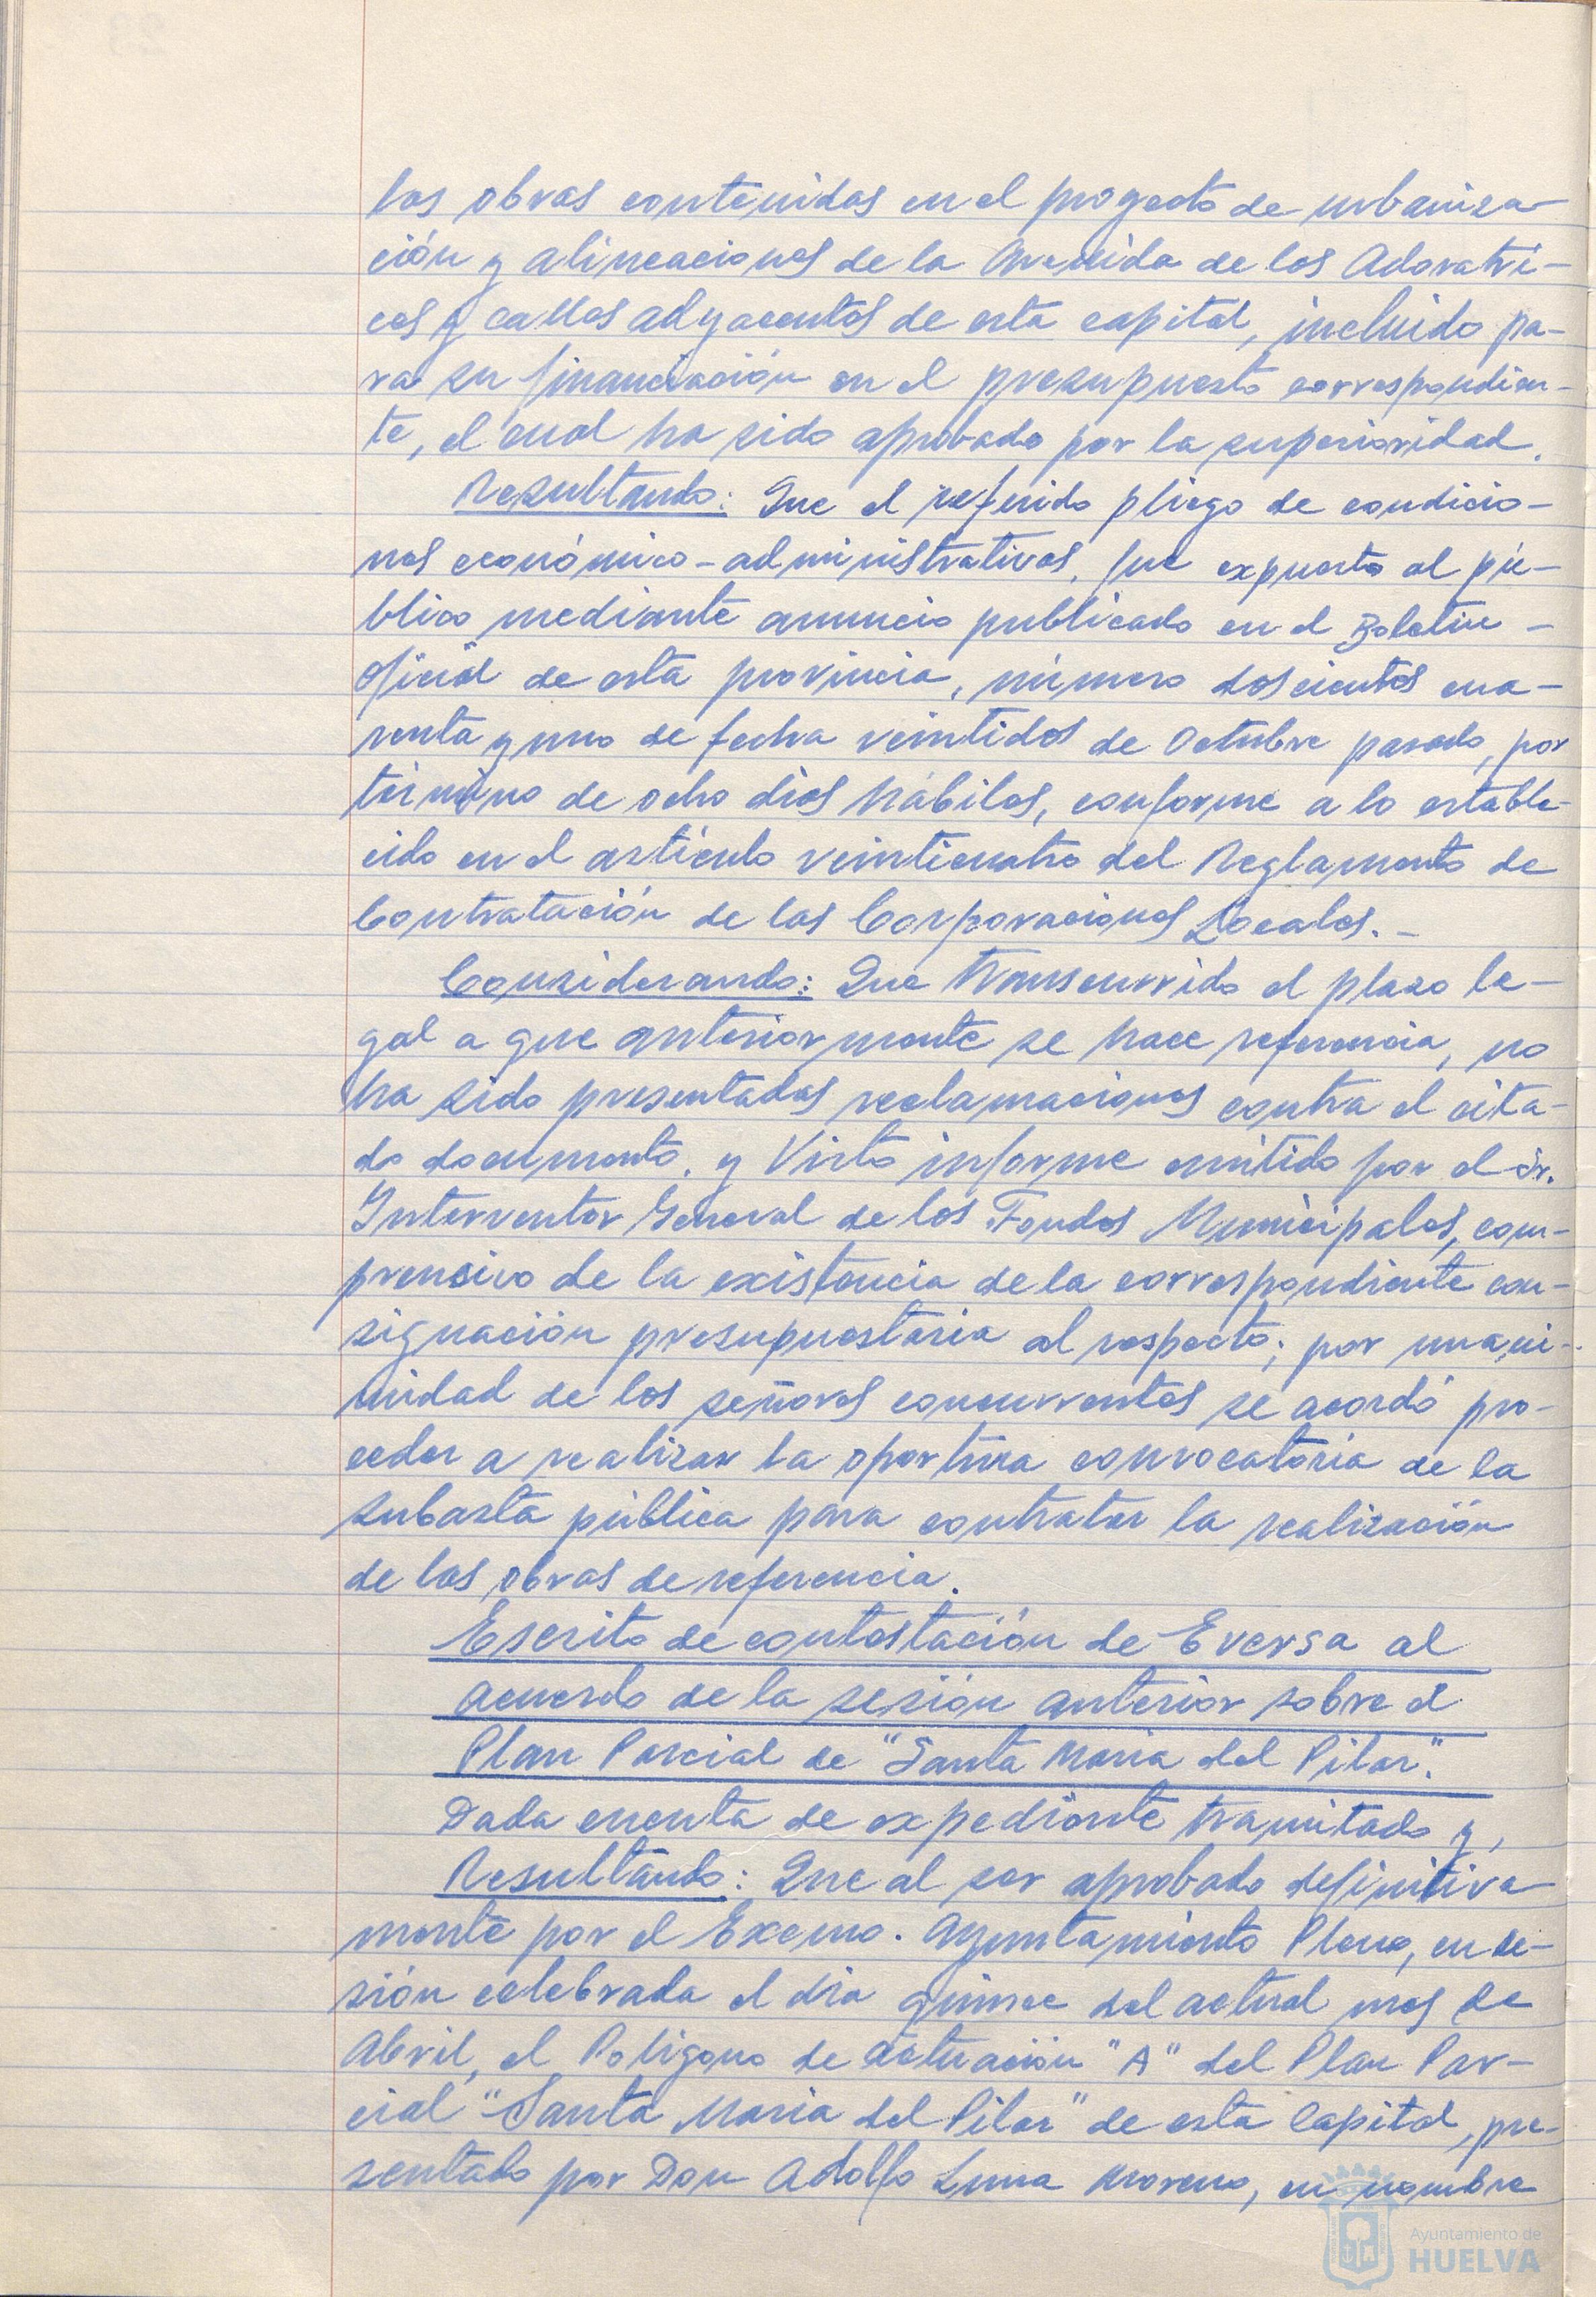 las obras contenidas en el proyecto de urbaniza-
ción y alineaciones de la Avenida de las Adoratri-
ces y calles adyacentes de esta capital, incluido pa-
ra su financiación en el presupuesto correspondien-
te, el cual ha sido aprobado por la superioridad.
Resultando: Que el referido pliego de condicio-
nes económico-administrativas, fue expuesto al pú-
blico mediante anuncio publicado en el Boletín -
Oficial de esta provincia, número doscientos cua-
renta y uno de fecha veintidos de Octubre pasado, por
término de ocho días hábiles, conforme a lo estable-
cido en el artículo veinticuatro del Reglamento de
Contratación de las Corporaciones Locales. -
Considerando: Que transcurrido el plazo le-
gal a que anteriormente se hace referencia, no
ha sido presentadas reclamaciones contra el cita-
do documento, y Visto informe emitido por el Sr.
Interventor General de los Fondos Municipales, com-
prensivo de la existencia de la correspondiente con-
signación presupuestaria al respecto; por unani-
midad de los señores concurrentes se acordó pro-
ceder a realizar la oportuna convocatoria de la
subasta pública para contratar la realización
de las obras de referencia.
Escrito de contestación de Eversa al
acuerdo de la sesión anterior sobre el
Plan Parcial de "Santa Maria del Pilar".
Dada cuenta de expediente tramitado y,
Resultando: Que al ser aprobado definitiva
mente por el Excmo. Ayuntamiento Pleno, en se-
sión celebrada el día quince del actual mes de
Abril, el Polígono de actuación "A" del Plan Par-
cial "Santa Maria del Pilar" de esta Capital, pre-
sentado por Don Adolfo Luna Moreno, en nombre
Ayuntamiento de
HUELVA